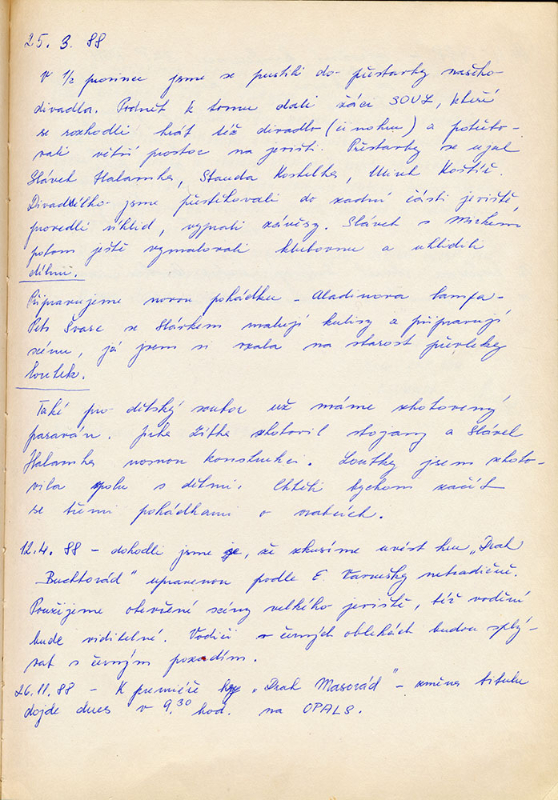 25. 3. 88
V 1/2 prosince jsme se pustili do přestavby našeho
divadla. Podnět k tomu dali žáci SOUZ, kteří
se rozhodli hrát též divadlo ( ) a potřebo-
vali větší prostor na jevišti. Přestavby se ujal
Slávek Halamka, Standa Kostelka, Mirek Koštíř.
jsme přestěhovali do zadní části jeviště,
provedli úklid, vyprali závěsy. Slávek s Mirkem
potom ještě vymalovali klubovnu a uklidili
dílnu.
Připravujeme novou pohádku - Aladinova lampa -
Petr Švarc se Slávkem malují kulisy a připravují
scénu, já jsem si vzala na starost převleky
loutek.
Také pro dětský soubor už máme zhotovený
paraván. Jirka Zítka zhotovil stojany a Slávek
Halamka nosnou konstrukci. Loutky jsem zhoto-
vila spolu s dětmi. Chtěli bychom začít
se třemi pohádkami o zvířátcích.
12.4. 88 - dohodli jsme se, že zkusíme uvést hru „Drak
Buchtorád" upravenou podle E. netradičně.
Použijeme otevřené scény velkého jeviště, též vodění
bude viditelné. Vodiči v černých oblekách budou splý-
vat s černým pozadím.
26.11.88 - K premiéře hry „Drak Masorád" - změna titulu
dojde dnes v 9.30 hod. na OPALS.